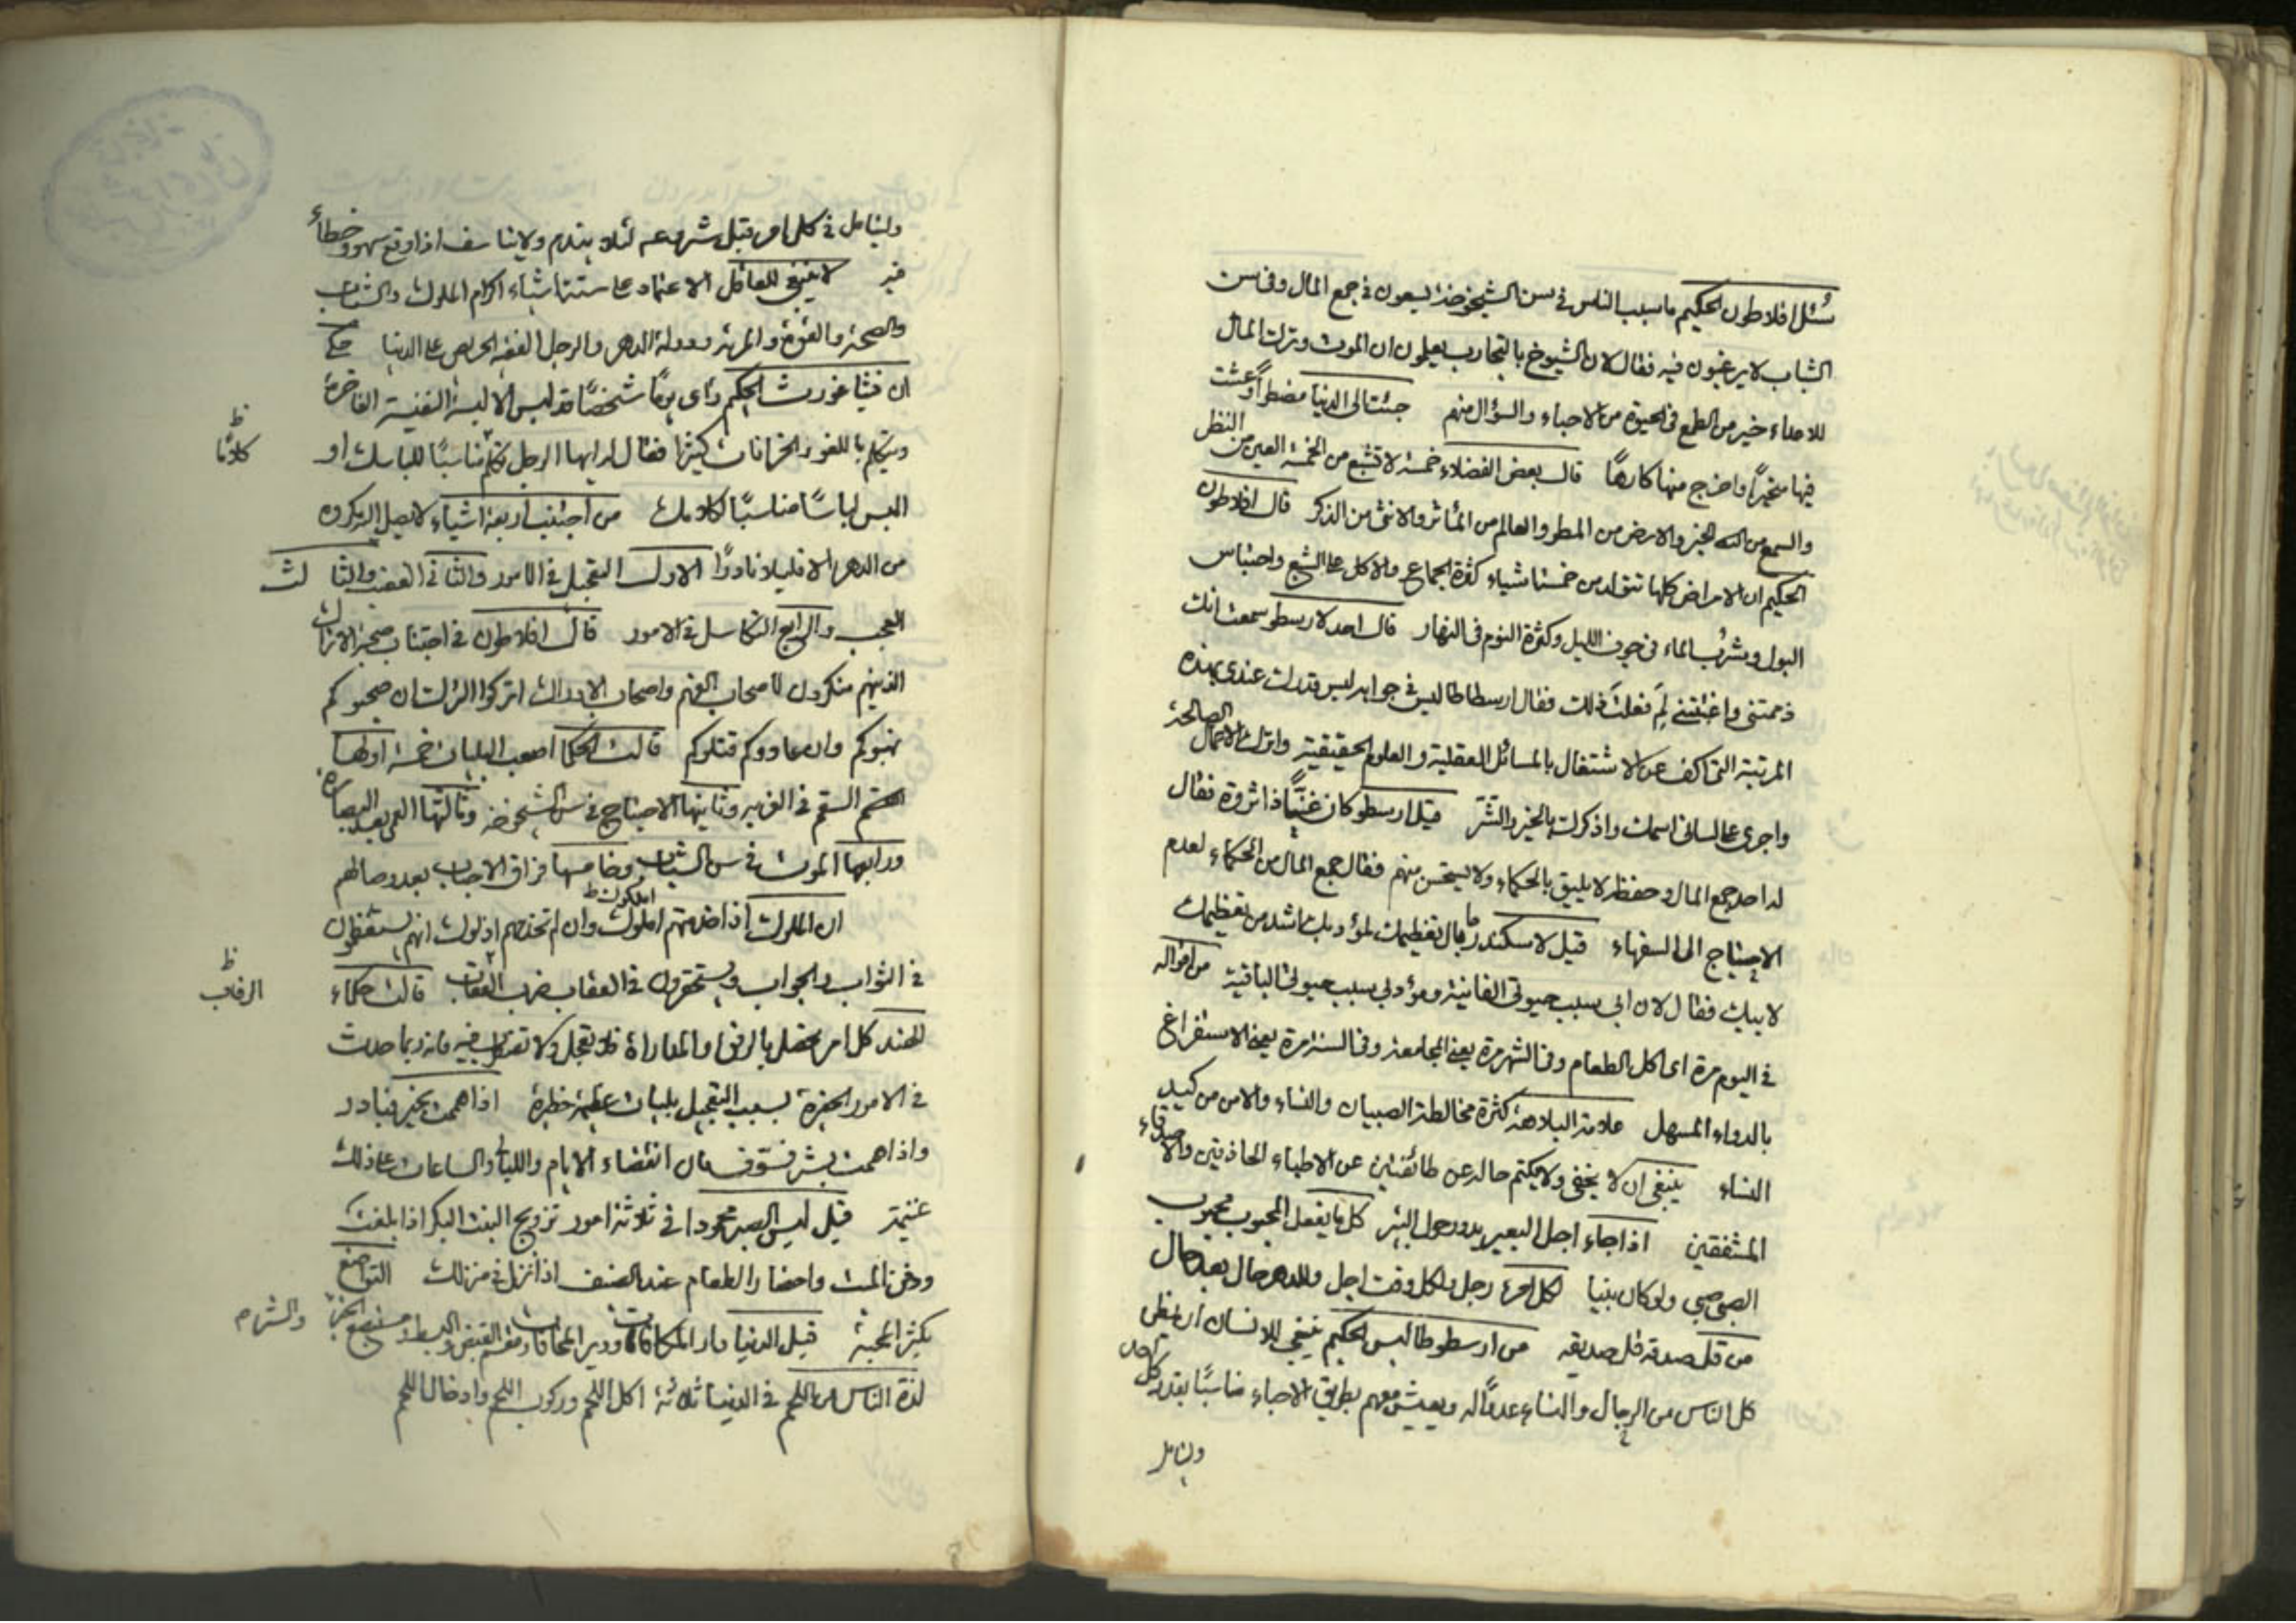 سئل افلاطون الحكيم ما سبب الناس في سن الشيخوخة يسعون في جمع المال وفي سن
الشباب لا يرغبون فيه فقال لان الشيوخ بالتجارب يعلمون ان الموت وترك المال
للاعداء خير من الطمع في الحيوة من الاحباء والسؤال منهم جئت الى الدنيا مضطرا وعشت
فيها متحيرا واخرج منها كارها قال بعض الفضلاء خمسة لا تشبع من الخمسة العين من النظر
والسمع من الخبر والارض من المطر والعالم من المآثر والانثى من الذكر قال افلاطون
الحكيم ان الامراض كلها تتولد من خمسة اشياء كثرة الجماع والاكل على الشبع واحتباس
البول وشرب الماء في جوف الليل وكثرة النوم في النهار قال احد لارسطو سمعت انك
ذممتني واغتبتني لم فعلت ذلك فقال ارسطاطاليس في جوابه ليس قدرك عندي بهذه
المرتبة التي اكف عن الاشتغال بالمسائل العقلية والعلوم الحقيقية واترك الاعمال الصالحة
واجرى على لساني اسمك واذكرك بالخير والشر قيل ارسطو كان غنيا ذا ثروة فقال
له احد جمع المال وحفظه لا يليق بالحكماء ولا يستحسن منهم فقال جمع المال من الحكماء لعدم
الاحتياج الى السفهاء قيل لاسكندر ما بال تعظيمك لمؤدبك اشد من تعظيمك
لابيك فقال لان ابي سبب حيوتي الفانية ومؤدبي سبب حيوتي الباقية من اقواله
في اليوم مرة اى اكل الطعام وفي الشهر مرة يعني المجامعة وفي السنة مرة يعني الاستفراغ
بالدواء المسهل علامة البلاهة كثرة مخالطة الصبيان والنساء والامن من كيد
النساء ينبغي ان لا يخفى ولا يكتم حاله عن طائفتين عن الاطباء الحاذقين والاصدقاء
المشفقين اذا جاء اجل البعير يدور حول البئر كل ما يفعل المحبوب محبوب
الصبي صبي ولو كان نبيا لكل امرء رجل ولكل وقت اجل وللدهر حال بعد حال
من قل صدقه قل صديقه من ارسطوطاليس الحكيم ينبغي للانسان ان يظن
كل الناس من الرجال والنساء عدوا له ويعيش معهم بطريق الاحباء مناسبا بقدر كل احد
وليتامل
وليتامل في كل امر قبل شروعه لئلا يندم ولا يتاسف اذا وقع سهو وخطاء
فيه لا ينبغي للعاقل الاعتماد على ستة اشياء اكرام الملوك والشباب
والصحة والقوة والمرءة ودولة الدهر والرجل الفقيه الحريص على الدنيا حكى
ان فيثاغورث الحكيم راى يوما شخصا قد لبس الالبسة النفيسة الفاخرة
ويتكلم باللغو والخرافات كثيرا فقال له ايها الرجل تكلم مناسبا للباسك او
ظ كلاما
البس لباسا مناسبا لكلامك من اجتنب اربعة اشياء لا يصل اليه مكروه
من الدهر الا قليلا نادرا الاول التعجيل في الامور والثاني الغضب والثالث
العجب والرابع التكاسل في الامور قال افلاطون في اجتناب صحبة الاتراك
الذينهم منكرون لاصحاب الفهم واصحاب الادراك اتركوا الترك ان صحبوكم
نهبوكم وان عادوكم قتلوكم قالت الحكما اصعب البليات خمسة اولها
السقم في الغربة وثانيها الاحتياج في سن الشيخوخة وثالثها العمى بعد البصارة
ورابعها الموت في سن الشباب وخامسها فراق الاحباب بعد وصالهم
ان الملوك اذا خدمتهم املوك وان لم تخدمهم اذلوك انهم يستعظمون
في الثواب رد الجواب ويستحقرون في العقاب ضرب العقاب قالت حكماء
ظ الرقاب
الهند كل امر يحصل بالرفق والمداراة فلا تعجل ولا فيه فانه ربما حدث
في الامور الخيرة بسبب التعجيل بليات عظيمة خطيرة اذا هممت بخير فبادر
واذا هممت بشر فسوف فان انقضاء الايام والليالي والساعات على ذلك
غنيمة قيل ليس الصبر محمودا في ثلاثة امور تزويج البنت البكر اذا بلغت
ودفن الميت واحضار الطعام عند الضيف اذا نزل في منزلك التواضع
يكثر المحبة قيل الدنيا دار المكافات ودير المخافات ومقسم القبض والبسط الخير والشر م
لذة الناس من اللحم في الدنيا ثلاثة اكل اللحم وركوب اللحم وادخال اللحم